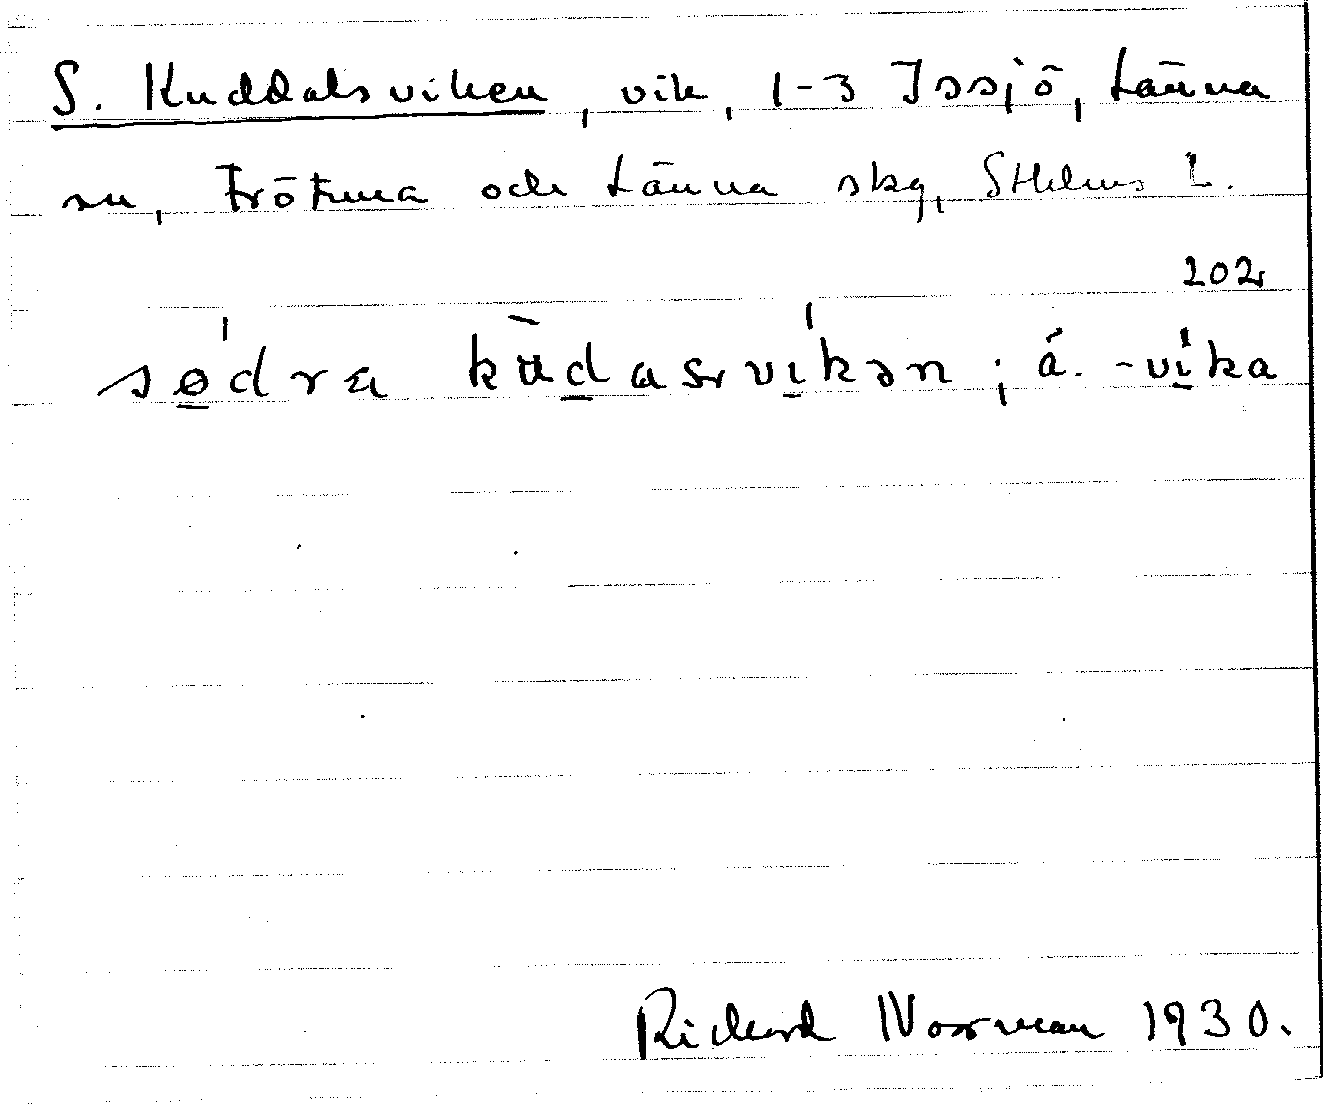 S. Kuddalsviken, vik, 1-3 Issjö, Länna
sn, Frötuna och Länna skg, Sthlms L.
202
sødra kùdasvikən; á. -vika
Richard Norrman 1930.